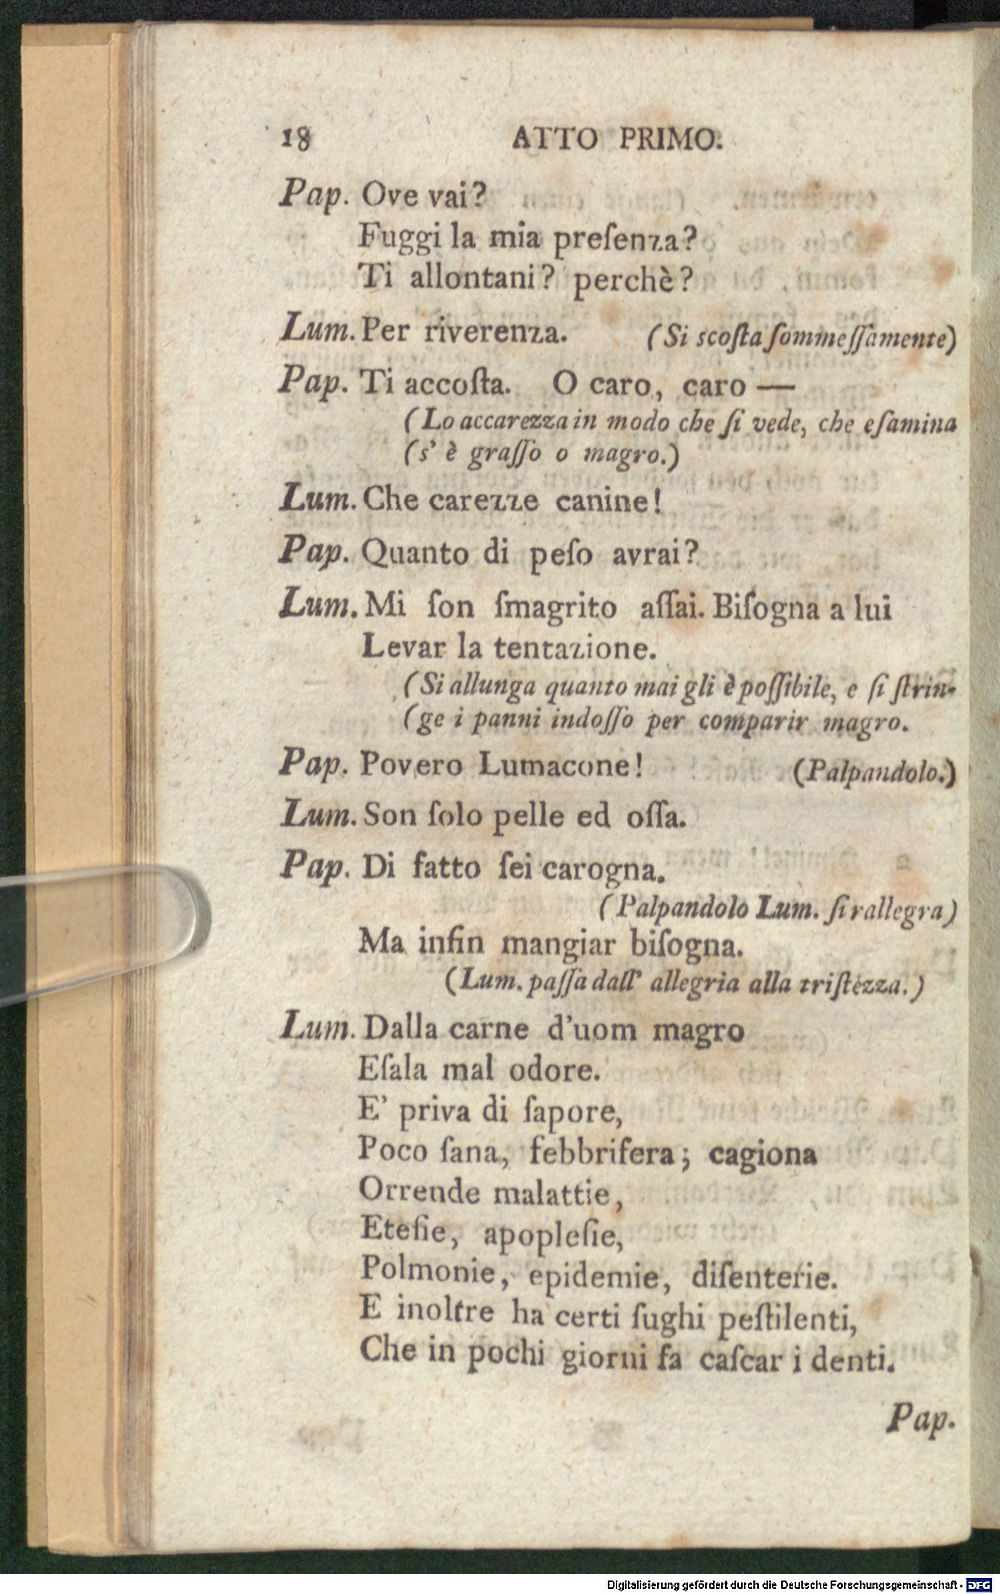 18 ATTO PRIMO.
Pap. Ove vai?
Fuggi la mia preſenza?
Ti allontani? perchè?
Lum. Per riverenza. (Si scoſta ſommeſſamente)
Pap. Ti accoſta. O caro, caro —
(Lo accarezza in modo che ſi vede, che eſamina
(s' è graſſo o magro.)
Lum. Che carezze canine!
Pap. Quanto di peſo avrai?
Lum. Mi ſon ſmagrito aſſai. Biſogna a lui
Levar la tentazione.
(Si allunga quanto mai gli è poſſibile, e ſi ſtrin-
(ge i panni indoſſo per comparir magro.
Pap. Povero Lumacone! (Palpandolo.)
Lum. Son ſolo pelle ed oſſa.
Pap. Di fatto ſei carogna.
(Palpandolo Lum. ſi rallegra)
Ma infin mangiar biſogna.
(Lum. paſſa dall' allegria alla triſtezza.)
Lum. Dalla carne d'uom magro
Eſala mal odore.
E' priva di ſapore,
Poco ſana, febbrifera; cagiona
Orrende malattie,
Eteſie, apopleſie,
Polmonie, epidemie, diſenterie.
E inoltre ha certi ſughi peſtilenti,
Che in pochi giorni fa caſcar i denti.
Pap.
Digitalisierung gefördert durch die Deutsche Forschungsgemeinschaft - DFG